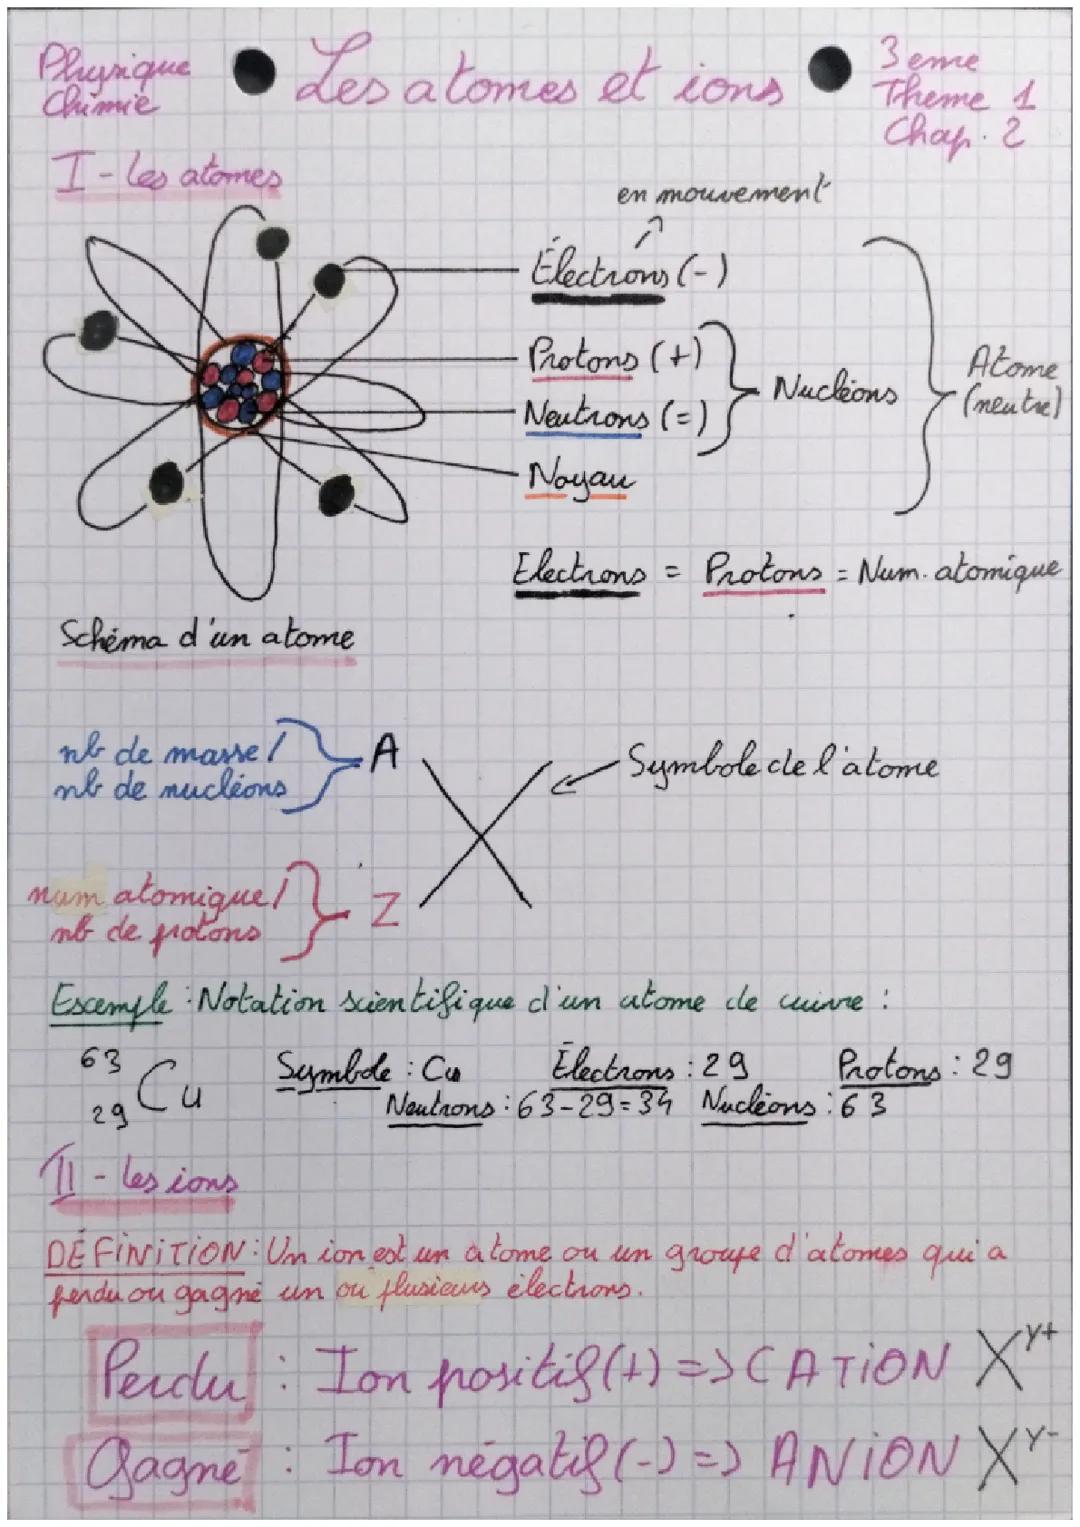 Physique
Chimie
Les atomes et ions
3eme
Theme 1
Chap. 2
I - les atomes
en mouvement
Électrons (-)
Protons (+)
Neutrons (=)
Nucléons
Atome
(neutre)
Noyau
Electrons = Protons = Num. atomique
Schéma d'un atome
nb de masse /
nb de nucléons
A
Symbole de l'atome
num atomique /
nb de protons
Z
Exemple : Notation scientifique d'un atome de cuivre :
63
29 Cu
Symbole : Cu Électrons : 29 Protons : 29
Neutrons : 63-29=34 Nucléons : 63
II - les ions
DÉFINITION : Un ion est un atome ou un groupe d'atomes qui a
perdu ou gagné un ou plusieurs électrons.
Perdu : Ion positif (+) => CATION X^Y+
Gagné : Ion négatif (-) => ANION X^Y-